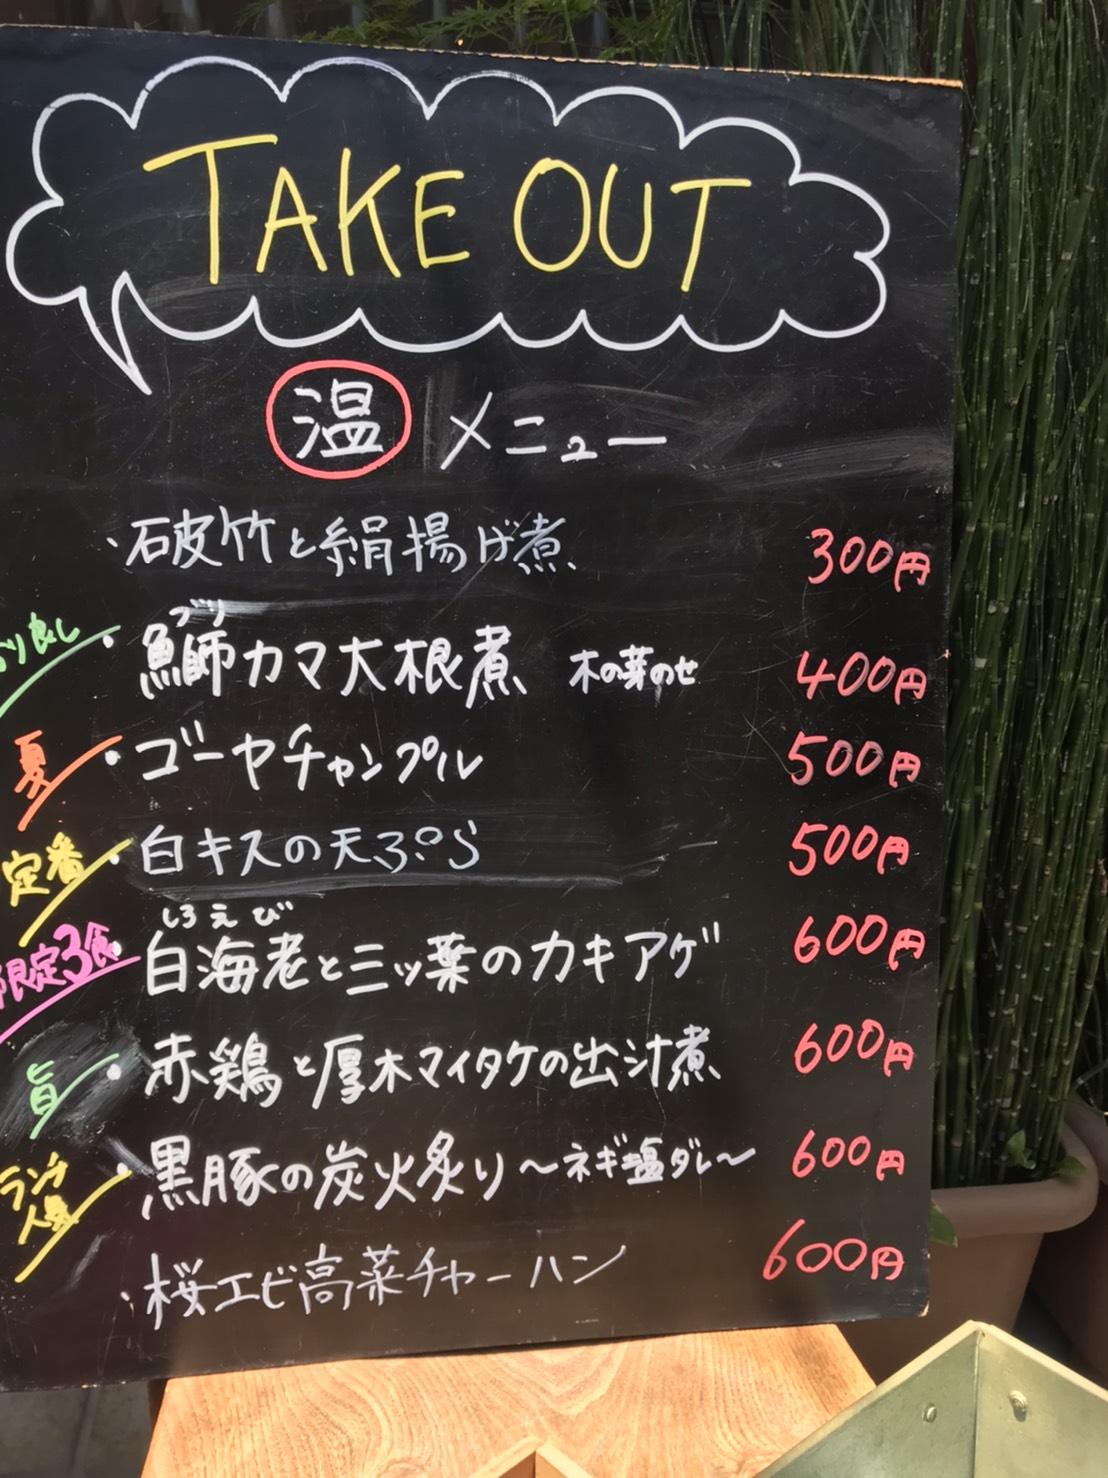 TAKE OUT
温 メニュー
・石破竹と絹揚げ煮 300円
ブリ
良し ・鰤カマ大根煮 木の芽のせ 400円
夏 ・ゴーヤチャンプル 500円
定番 ・白キスの天ぷら 500円
しろえび
限定3食 白海老と三ッ葉のカキアゲ 600円
旨 ・赤鶏と厚木マイタケの出汁煮 600円
ランチ人気 ・黒豚の炭火炙り～ネギ塩ダレ～ 600円
・桜エビ高菜チャーハン 600円